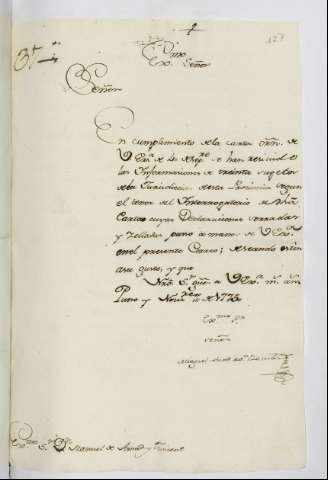 Exmo Señor
Señor
En cumplimiento de la carta orn. de
V Exa de 4 de se han recivido
las Informaciones de treinta sugetos
de la Jurisdiccion de esta Provincia segun
el tenor del Interrogatorio de dha
Carta cuyas Declaraciones cerradas
y selladas pongo a manos de V Exa
en el presente Correo; deseando esten
a su gusto, y que
Nro Sr gue a V Exa m. an.
Puno y Novre de 1770
Exmo Sr
Señor
Miguel
Exmo Sr Dn Manuel de Amat y Junient